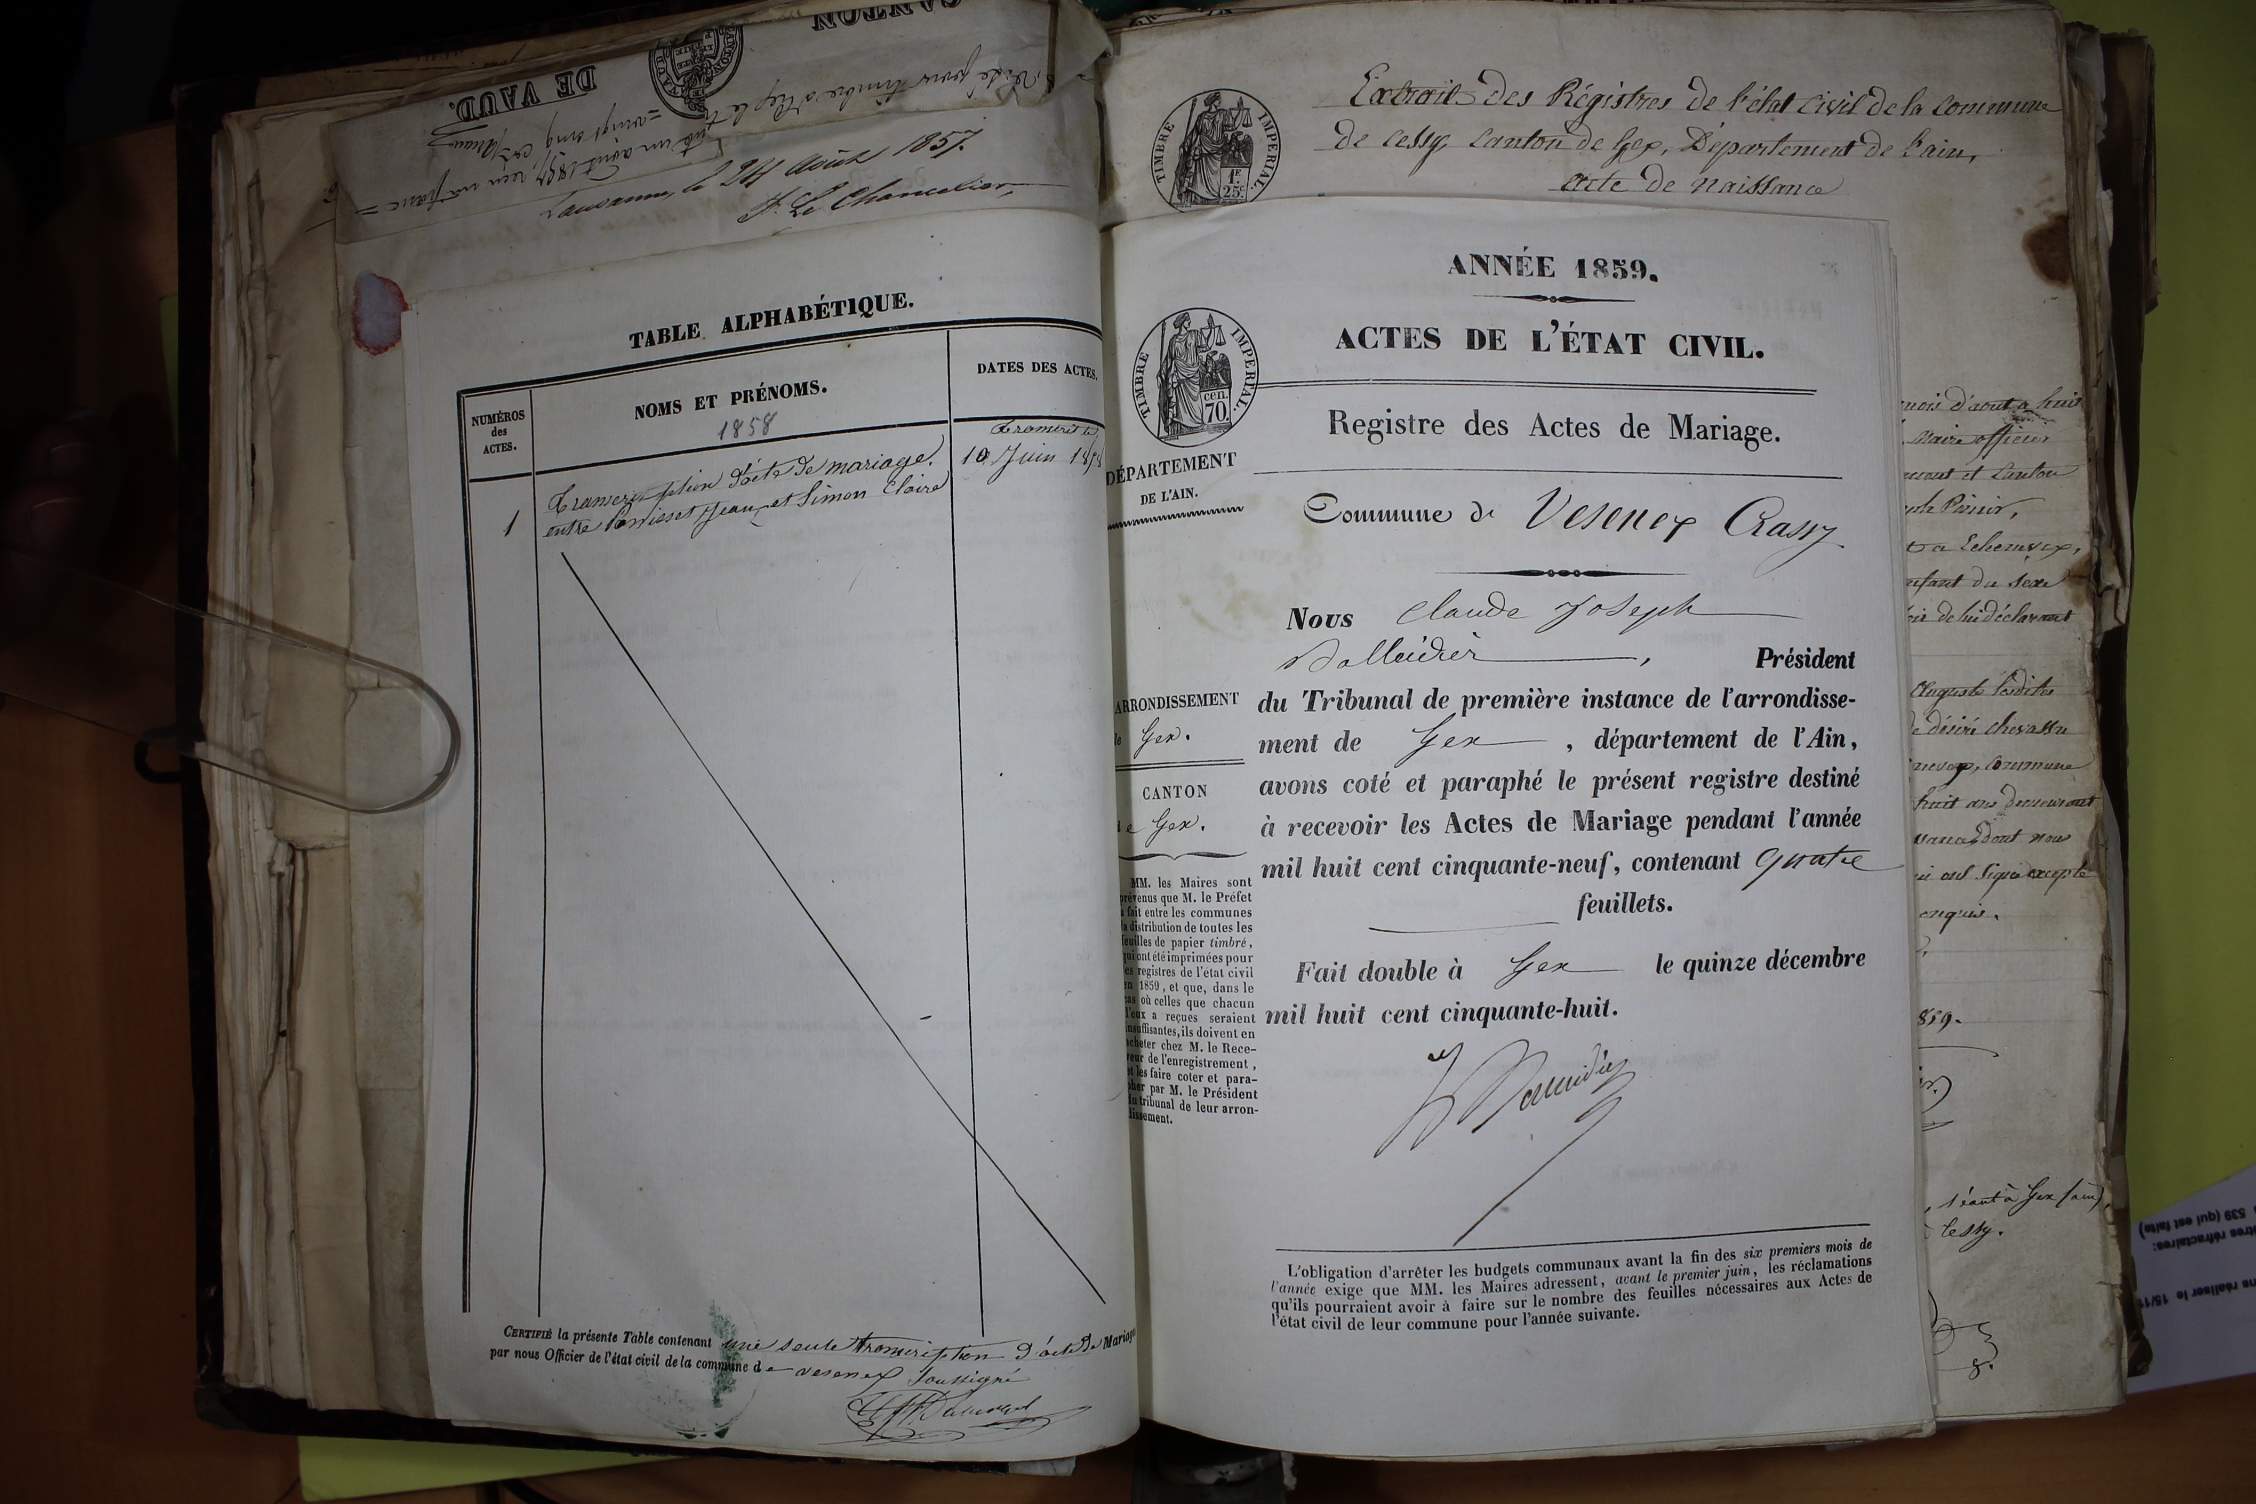 CANTON
DE VAUD.
Lausanne, le 24 Août 1857.
Le Chancelier,
TABLE ALPHABÉTIQUE.
NUMÉROS
des
ACTES.
NOMS ET PRÉNOMS.
1858
DATES DES ACTES.
1
Transcription d'acte de mariage.
entre Jean et Simon Claire
Transcrit le
10 Juin 1858
CERTIFIÉ la présente Table contenant une seule transcription d'acte de Mariage
par nous Officier de l'état civil de la commune de vesenex soussigné
Extrait des Régistres de l'état civil de la commune
de cessy canton de Gex, Département de l'ain,
acte de naissance
TIMBRE IMPERIAL.
1F.
25c
ANNÉE 1859.
ACTES DE L'ÉTAT CIVIL.
TIMBRE IMPERIAL.
cen.
70.
Registre des Actes de Mariage.
DÉPARTEMENT
DE L'AIN.
Commune de Vesenex Crassy
Nous Claude Joseph
, Président
du Tribunal de première instance de l'arrondisse-
ment de Gex , département de l'Ain,
avons coté et paraphé le présent registre destiné
à recevoir les Actes de Mariage pendant l'année
mil huit cent cinquante-neuf, contenant quatre
feuillets.
Fait double à Gex le quinze décembre
mil huit cent cinquante-huit.
ARRONDISSEMENT
de Gex.
CANTON
de Gex.
MM. les Maires sont
prévenus que M. le Préfet
a fait entre les communes
la distribution de toutes les
feuilles de papier timbré,
qui ont été imprimées pour
les registres de l'état civil
en 1859, et que, dans le
cas où celles que chacun
d'eux a reçues seraient
insuffisantes, ils doivent en
acheter chez M. le Rece-
veur de l'enregistrement,
et les faire coter et para-
pher par M. le Président
du tribunal de leur arron-
dissement.
L'obligation d'arrêter les budgets communaux avant la fin des six premiers mois de
l'année exige que MM. les Maires adressent, avant le premier juin, les réclamations
qu'ils pourraient avoir à faire sur le nombre des feuilles nécessaires aux Actes de
l'état civil de leur commune pour l'année suivante.
mois d'aout a huit
Maire officier
et Canton
enfant du sexe
de lui déclarant
Auguste
désiré chevassu
commune
huit ans demeurant
dont nous
ont signé excepté
enquis.
859.
séant à Gex (ain),
Cessy.